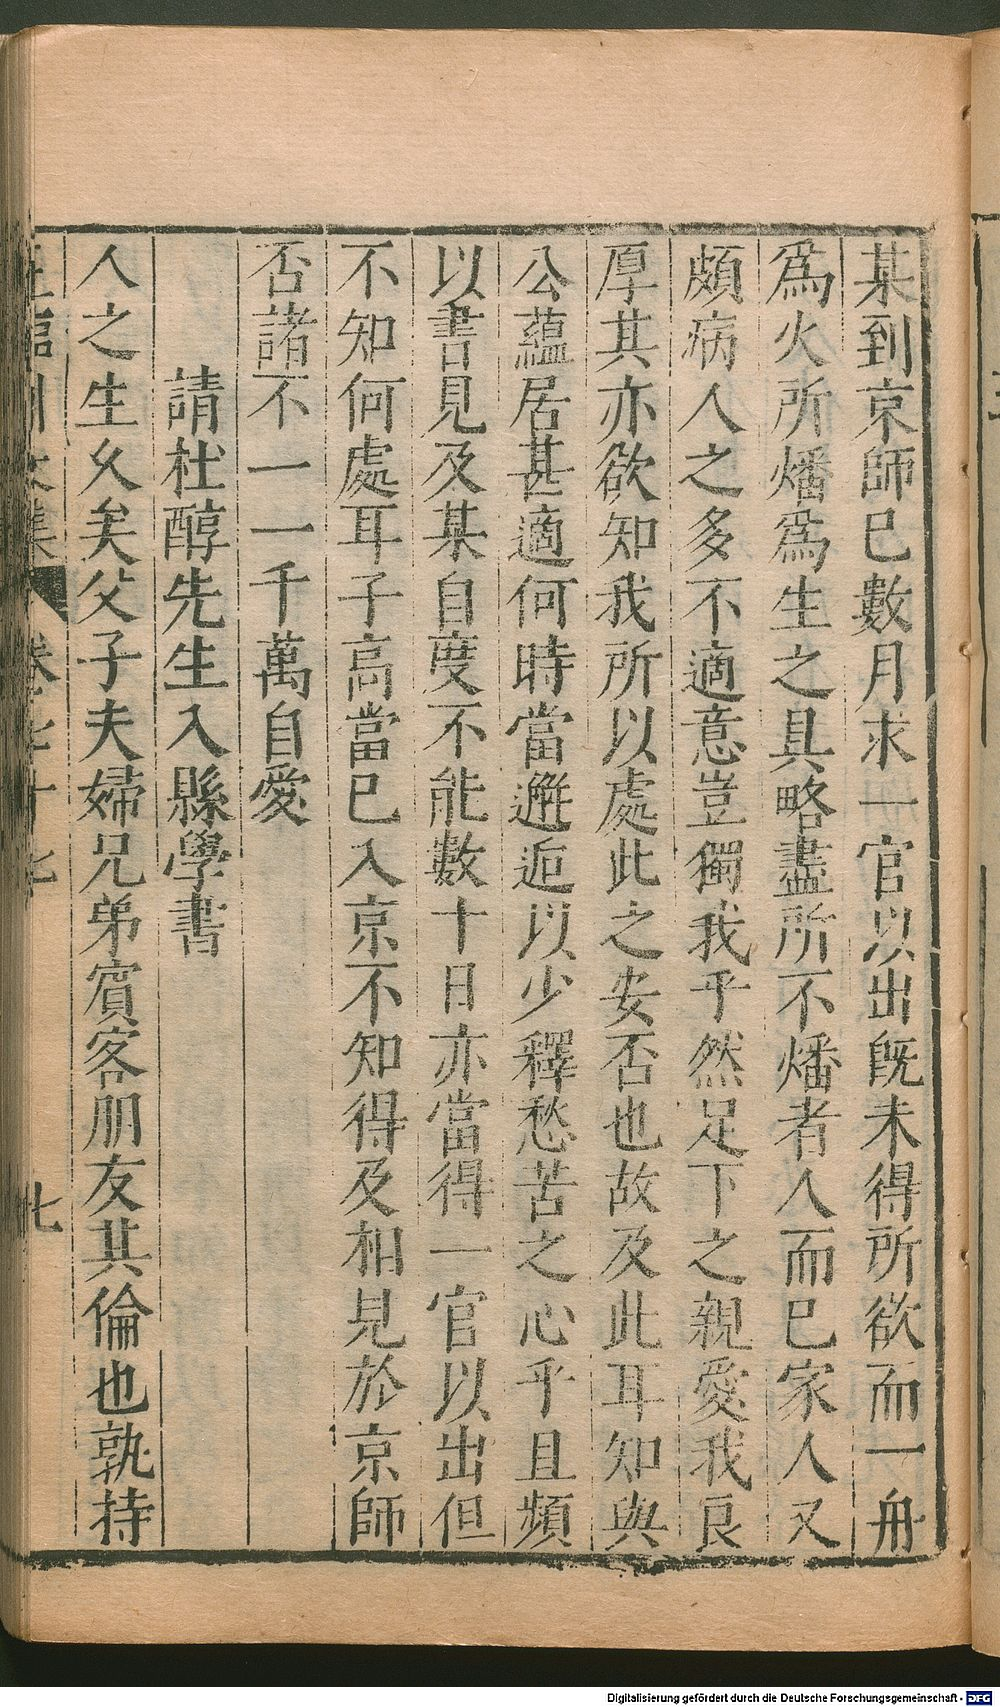 某到京師已數月求一官以出旣未得所欲而一舟
爲火所燔爲生之具略盡所不燔者人而已家人又
頗病人之多不適意豈獨我乎然足下之親愛我良
厚其亦欲知我所以處此之安否也故及此耳知與
公蘊居甚適何時當邂逅以少釋愁苦之心乎且頻
以書見及某自度不能數十日亦當得一官以出但
不知何處耳子高當已入京不知得及相見於京師
否諸不一一千萬自愛
請杜醇先生入縣學書
人之生久矣父子夫婦兄弟賓客朋友其倫也孰持
臨川文集 卷七十七 七
Digitalisierung gefördert durch die Deutsche Forschungsgemeinschaft - DFG